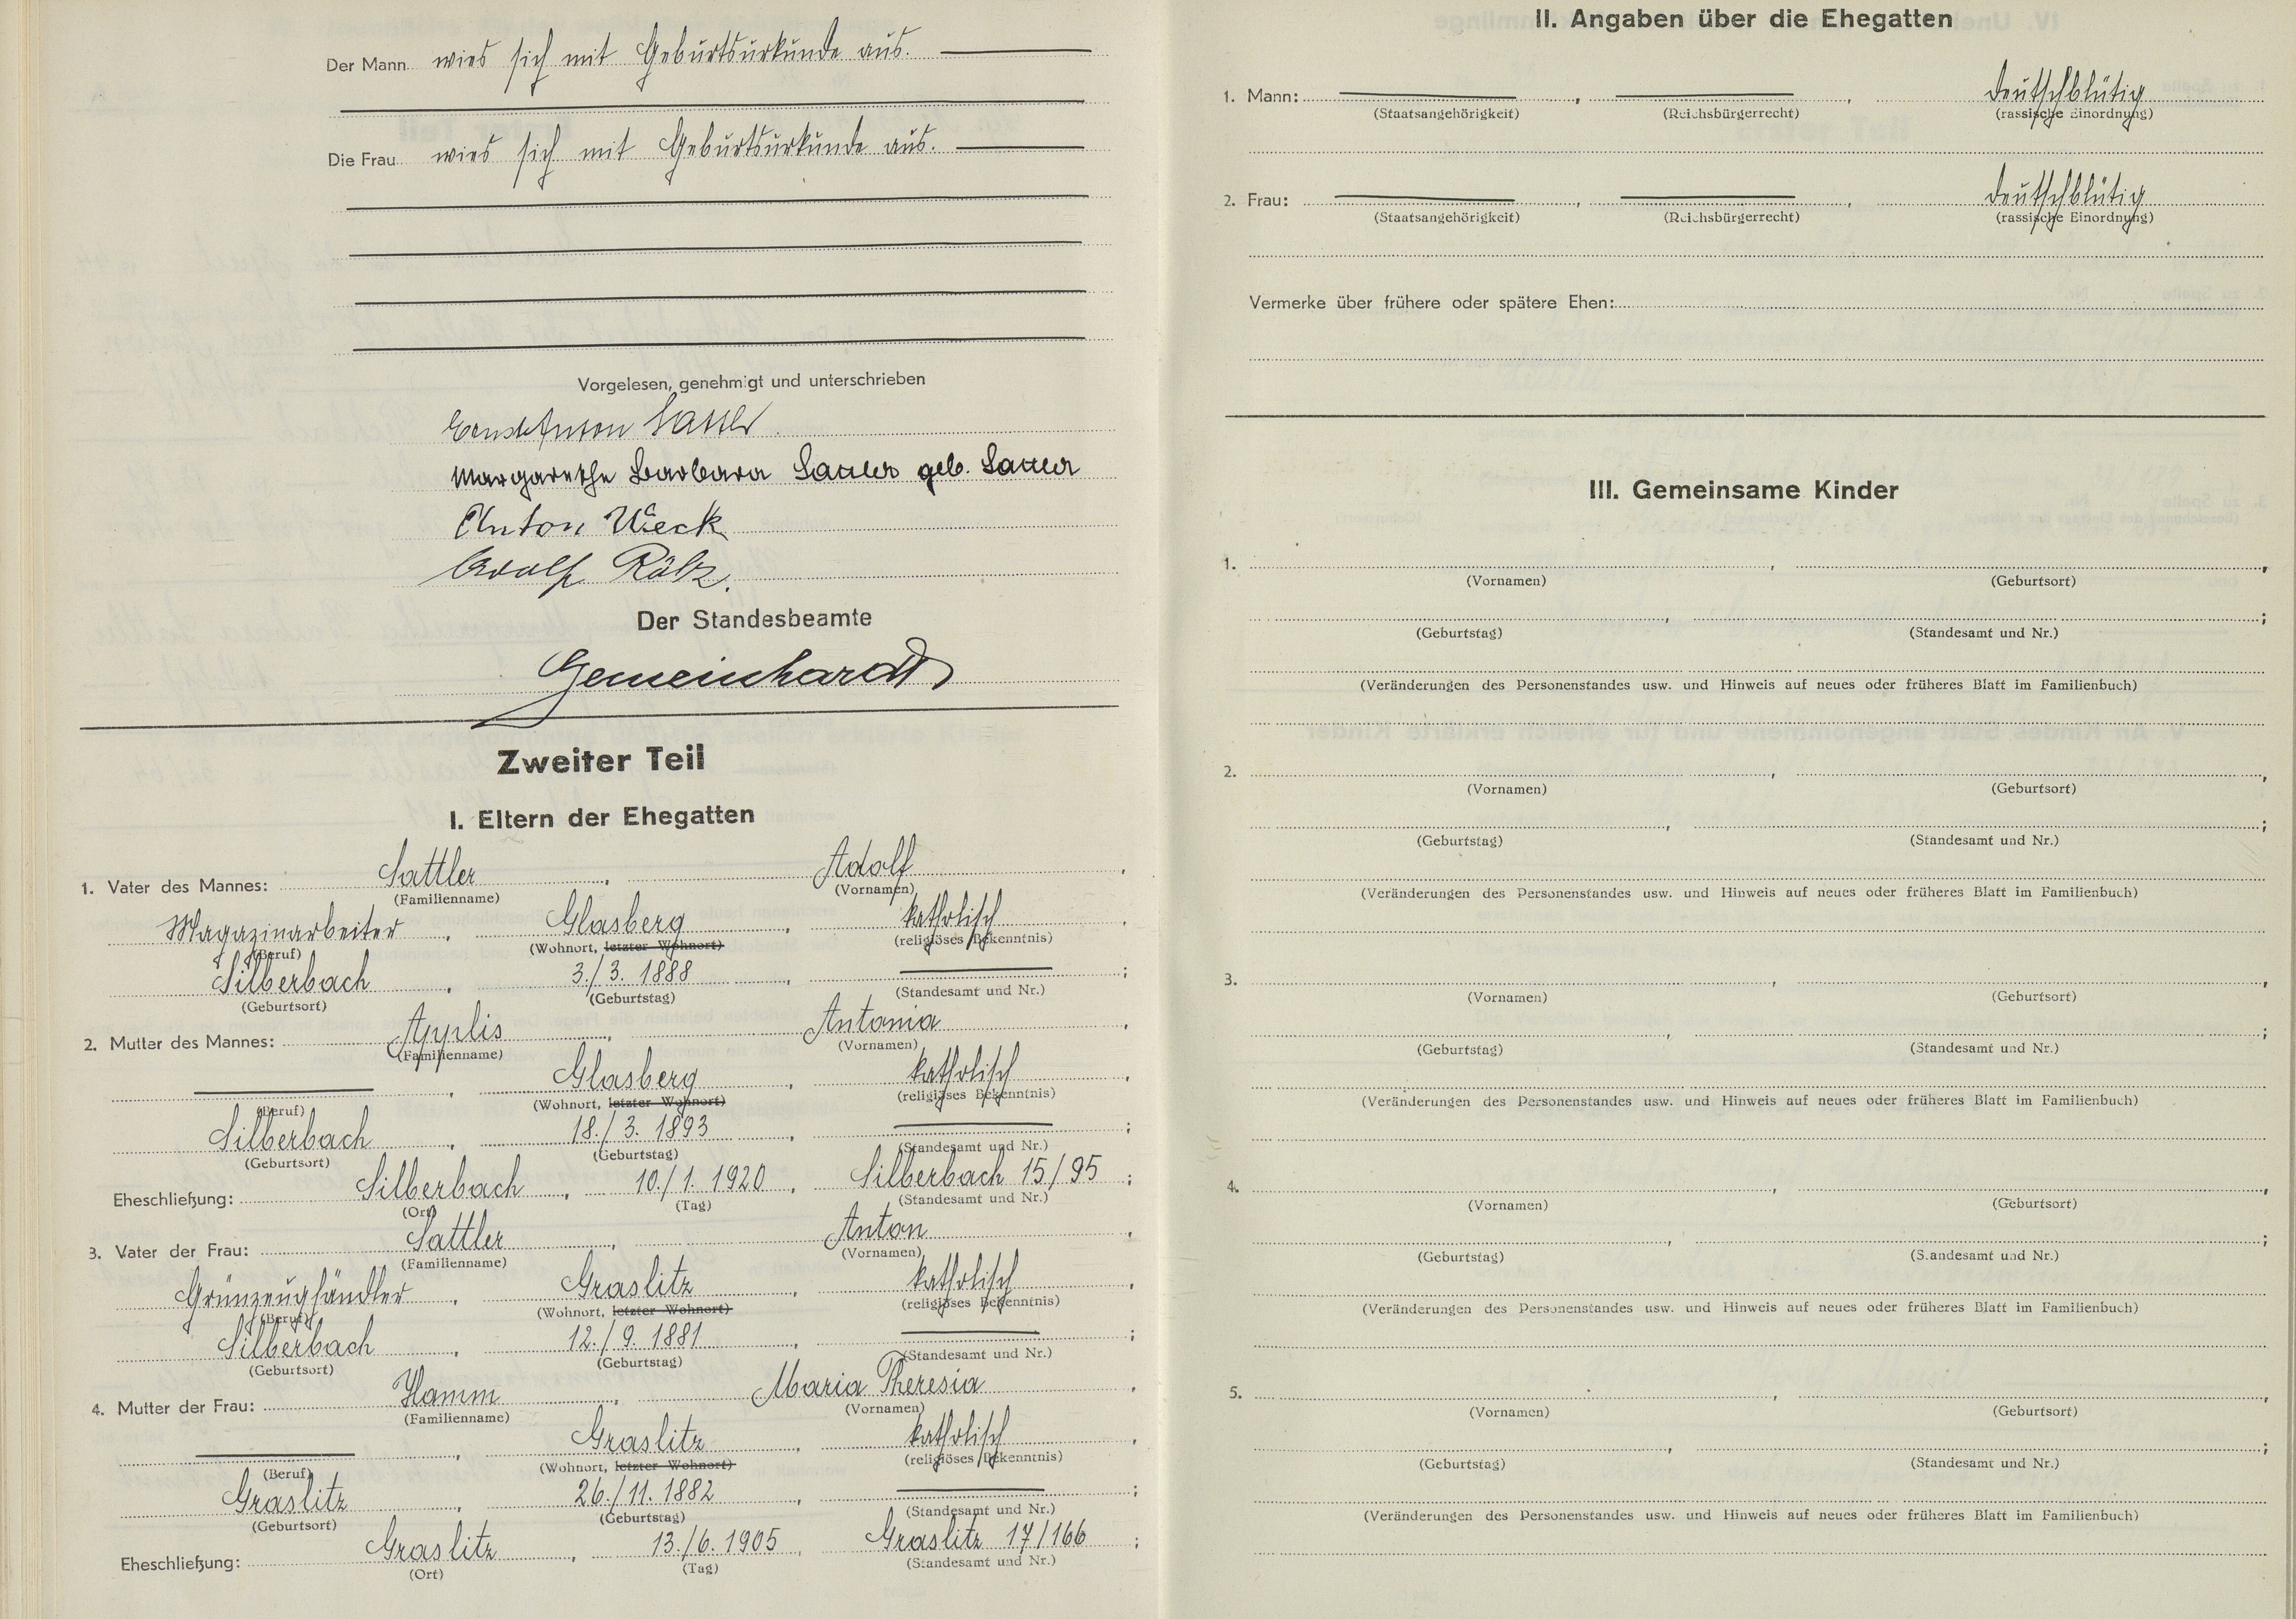 Der Mann wies sich mit Geburtsurkunde aus.
Die Frau wies sich mit Geburtsurkunde aus.
Vorgelesen, genehmigt und unterschrieben
Ernst Anton Sattler
Margarethe Barbara Sattler geb. Sattler
Anton Wieck
Adolf Rölz.
Der Standesbeamte
Gemeinhardt
Zweiter Teil
I. Eltern der Ehegatten
1. Vater des Mannes: Sattler, Adolf,
(Familienname) (Vornamen)
Magazinarbeiter, Glasberg, katholisch,
(Beruf) (Wohnort, letzter Wohnort) (religiöses Bekenntnis)
Silberbach, 3./3. 1888, ;
(Geburtsort) (Geburtstag) (Standesamt und Nr.)
2. Mutter des Mannes: Opplis, Antonia,
(Familienname) (Vornamen)
, Glasberg, katholisch,
(Beruf) (Wohnort, letzter Wohnort) (religiöses Bekenntnis)
Silberbach, 18./3. 1893, ;
(Geburtsort) (Geburtstag) (Standesamt und Nr.)
Eheschließung: Silberbach, 10./1. 1920, Silberbach 15/95;
(Ort) (Tag) (Standesamt und Nr.)
3. Vater der Frau: Sattler, Anton,
(Familienname) (Vornamen)
Grünzeughändler, Graslitz, katholisch,
(Beruf) (Wohnort, letzter Wohnort) (religiöses Bekenntnis)
Silberbach, 12./9. 1881, ;
(Geburtsort) (Geburtstag) (Standesamt und Nr.)
4. Mutter der Frau: Hamm, Maria Theresia,
(Familienname) (Vornamen)
, Graslitz, katholisch,
(Beruf) (Wohnort, letzter Wohnort) (religiöses Bekenntnis)
Graslitz, 26./11. 1882, ;
(Geburtsort) (Geburtstag) (Standesamt und Nr.)
Eheschließung: Graslitz, 13./6. 1905, Graslitz 17/166;
(Ort) (Tag) (Standesamt und Nr.)
II. Angaben über die Ehegatten
1. Mann: , , deutschblütig
(Staatsangehörigkeit) (Reichsbürgerrecht) (rassische Einordnung)
2. Frau: , , deutschblütig
(Staatsangehörigkeit) (Reichsbürgerrecht) (rassische Einordnung)
Vermerke über frühere oder spätere Ehen:
III. Gemeinsame Kinder
1. , ,
(Vornamen) (Geburtsort)
, ;
(Geburtstag) (Standesamt und Nr.)
(Veränderungen des Personenstandes usw. und Hinweis auf neues oder früheres Blatt im Familienbuch)
2. , ,
(Vornamen) (Geburtsort)
, ;
(Geburtstag) (Standesamt und Nr.)
(Veränderungen des Personenstandes usw. und Hinweis auf neues oder früheres Blatt im Familienbuch)
3. , ,
(Vornamen) (Geburtsort)
, ;
(Geburtstag) (Standesamt und Nr.)
(Veränderungen des Personenstandes usw. und Hinweis auf neues oder früheres Blatt im Familienbuch)
4. , ,
(Vornamen) (Geburtsort)
, ;
(Geburtstag) (Standesamt und Nr.)
(Veränderungen des Personenstandes usw. und Hinweis auf neues oder früheres Blatt im Familienbuch)
5. , ,
(Vornamen) (Geburtsort)
, ;
(Geburtstag) (Standesamt und Nr.)
(Veränderungen des Personenstandes usw. und Hinweis auf neues oder früheres Blatt im Familienbuch)